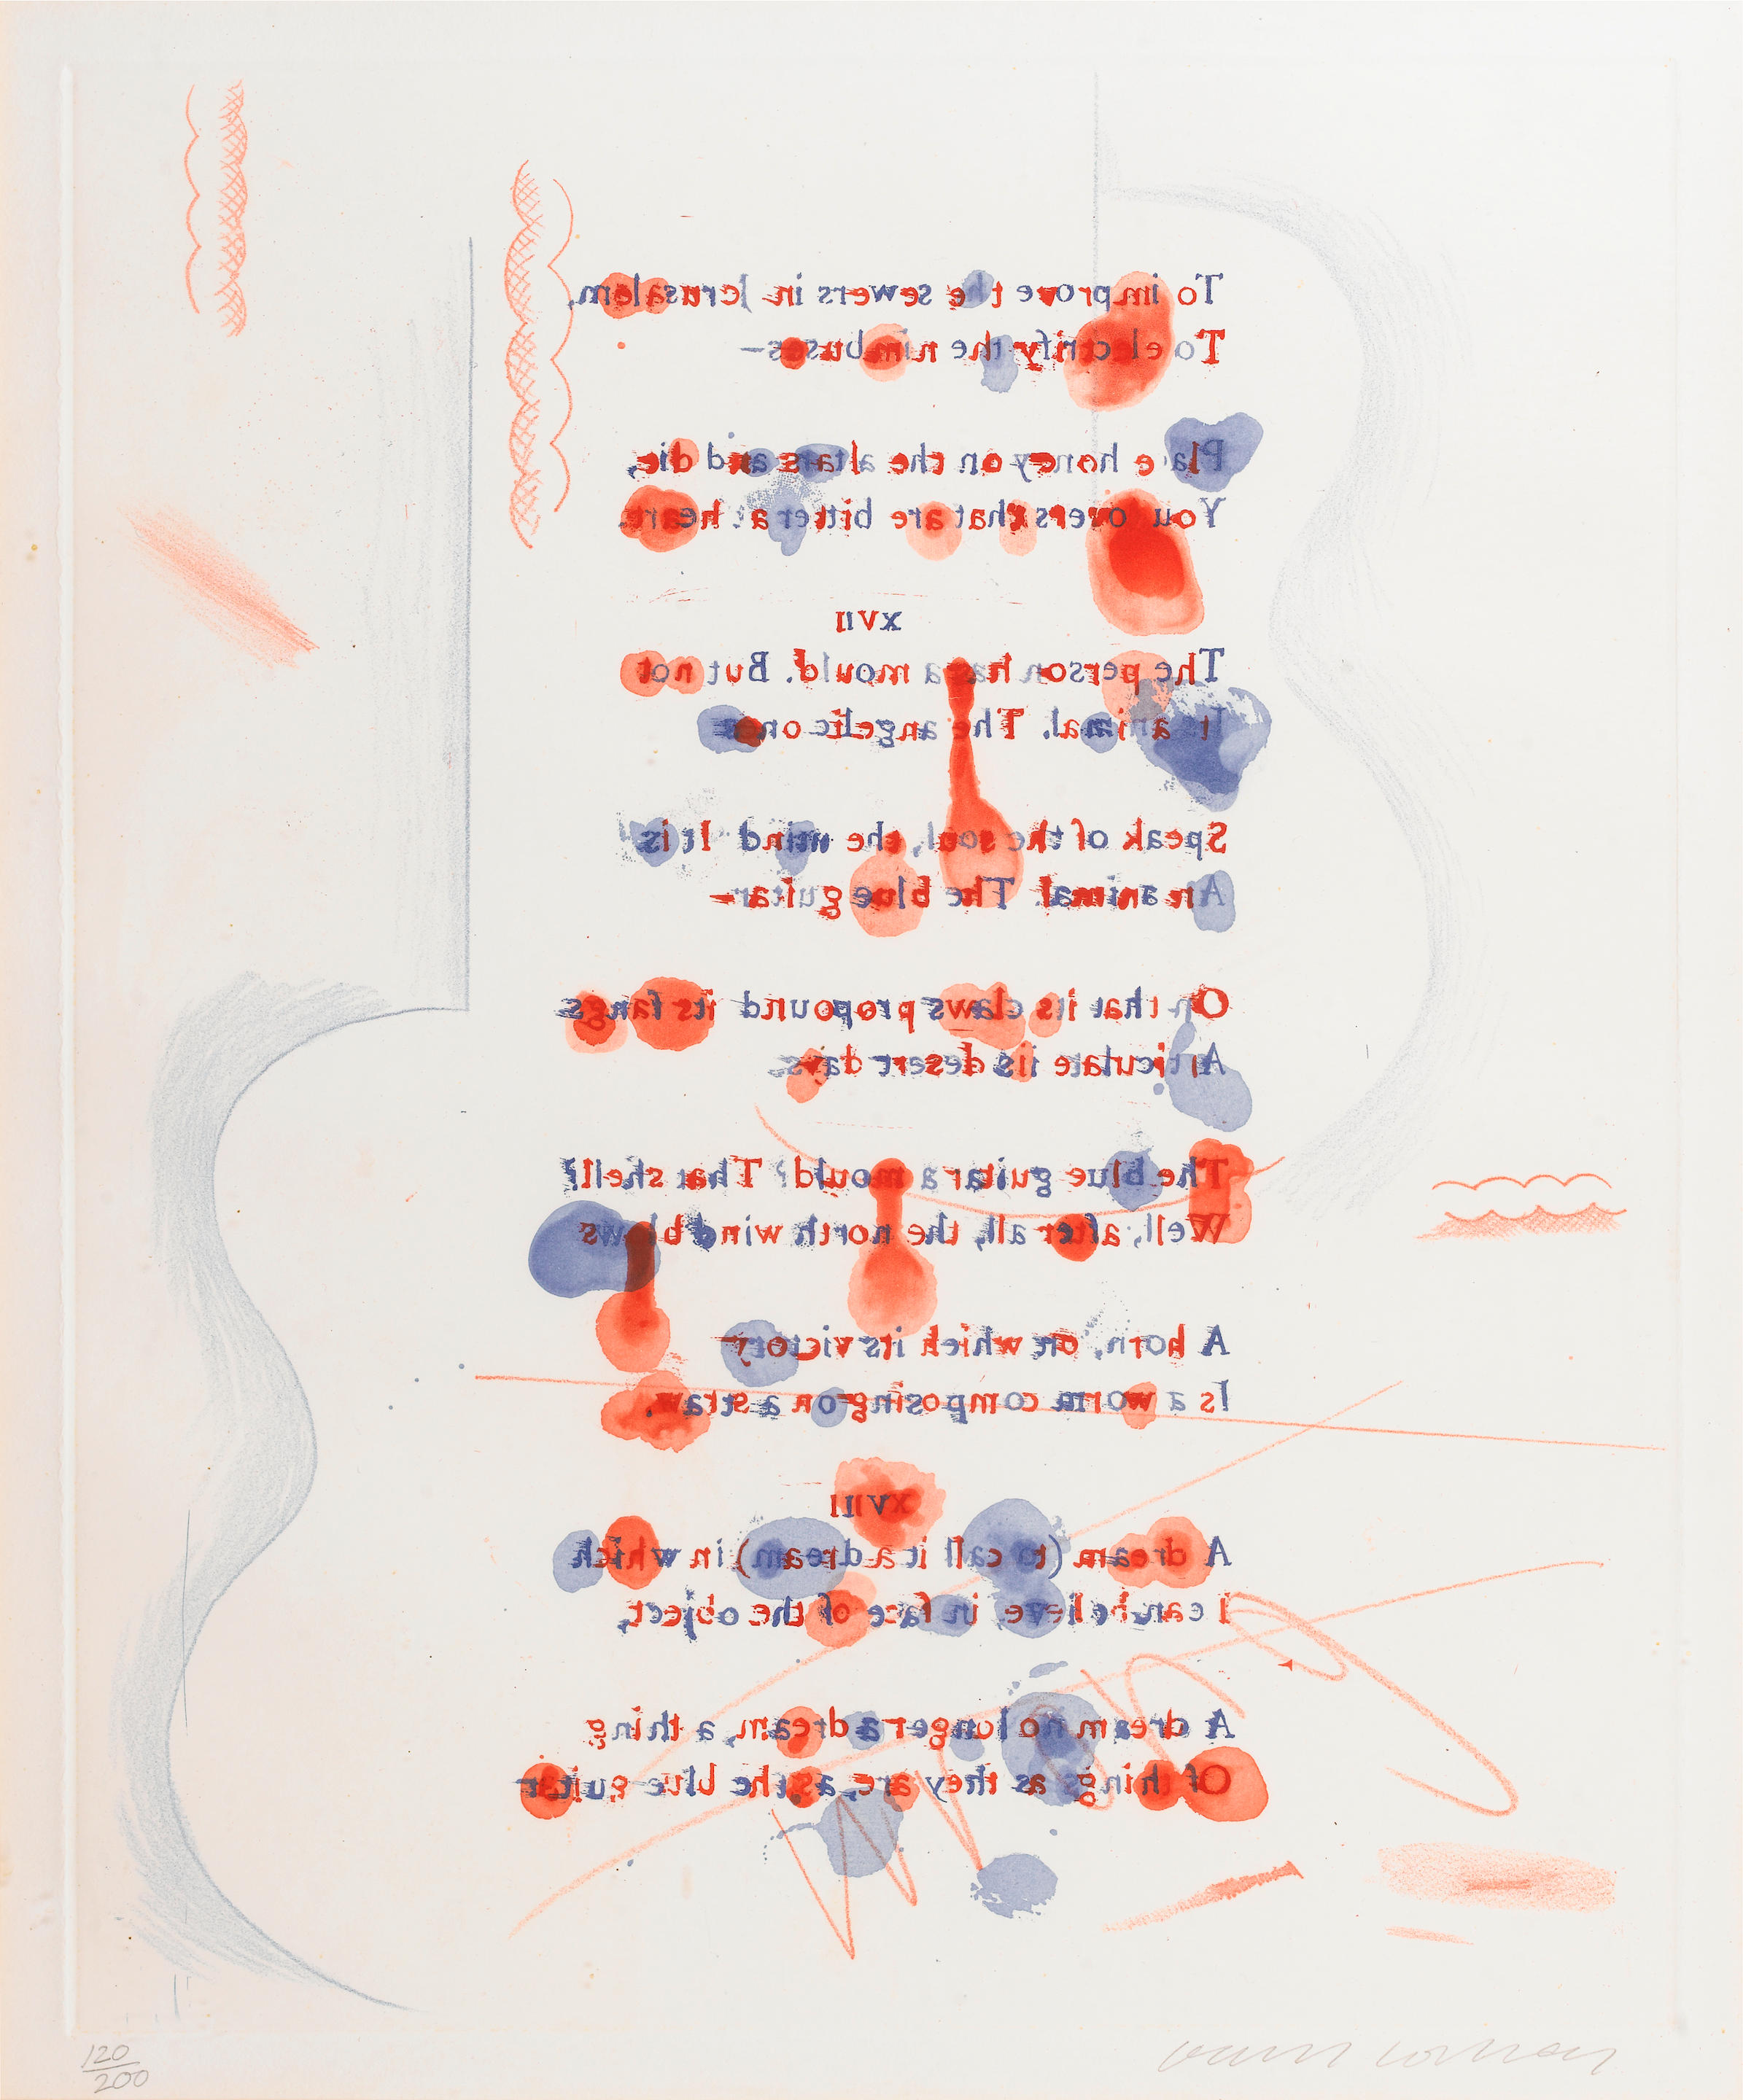 To improve the sewers in Jerusalem,
To electrify the nimbuses—
Place honey on the altars and die,
You lovers that are bitter at heart.
XVII
The person has a mould. But not
Its animal. The angelic ones
Speak of the soul, the mind. It is
An animal. The blue guitar—
On that its claws propound its fangs
Articulate its desert days.
The blue guitar a mould? That shell?
Well, after all, the north wind blows
A horn, on which its victory
Is a worm composing on a straw.
XVIII
A dream (to call it a dream) in which
I can believe, in face of the object,
A dream no longer a dream, a thing
Of things as they are, as the blue guitar
120/200